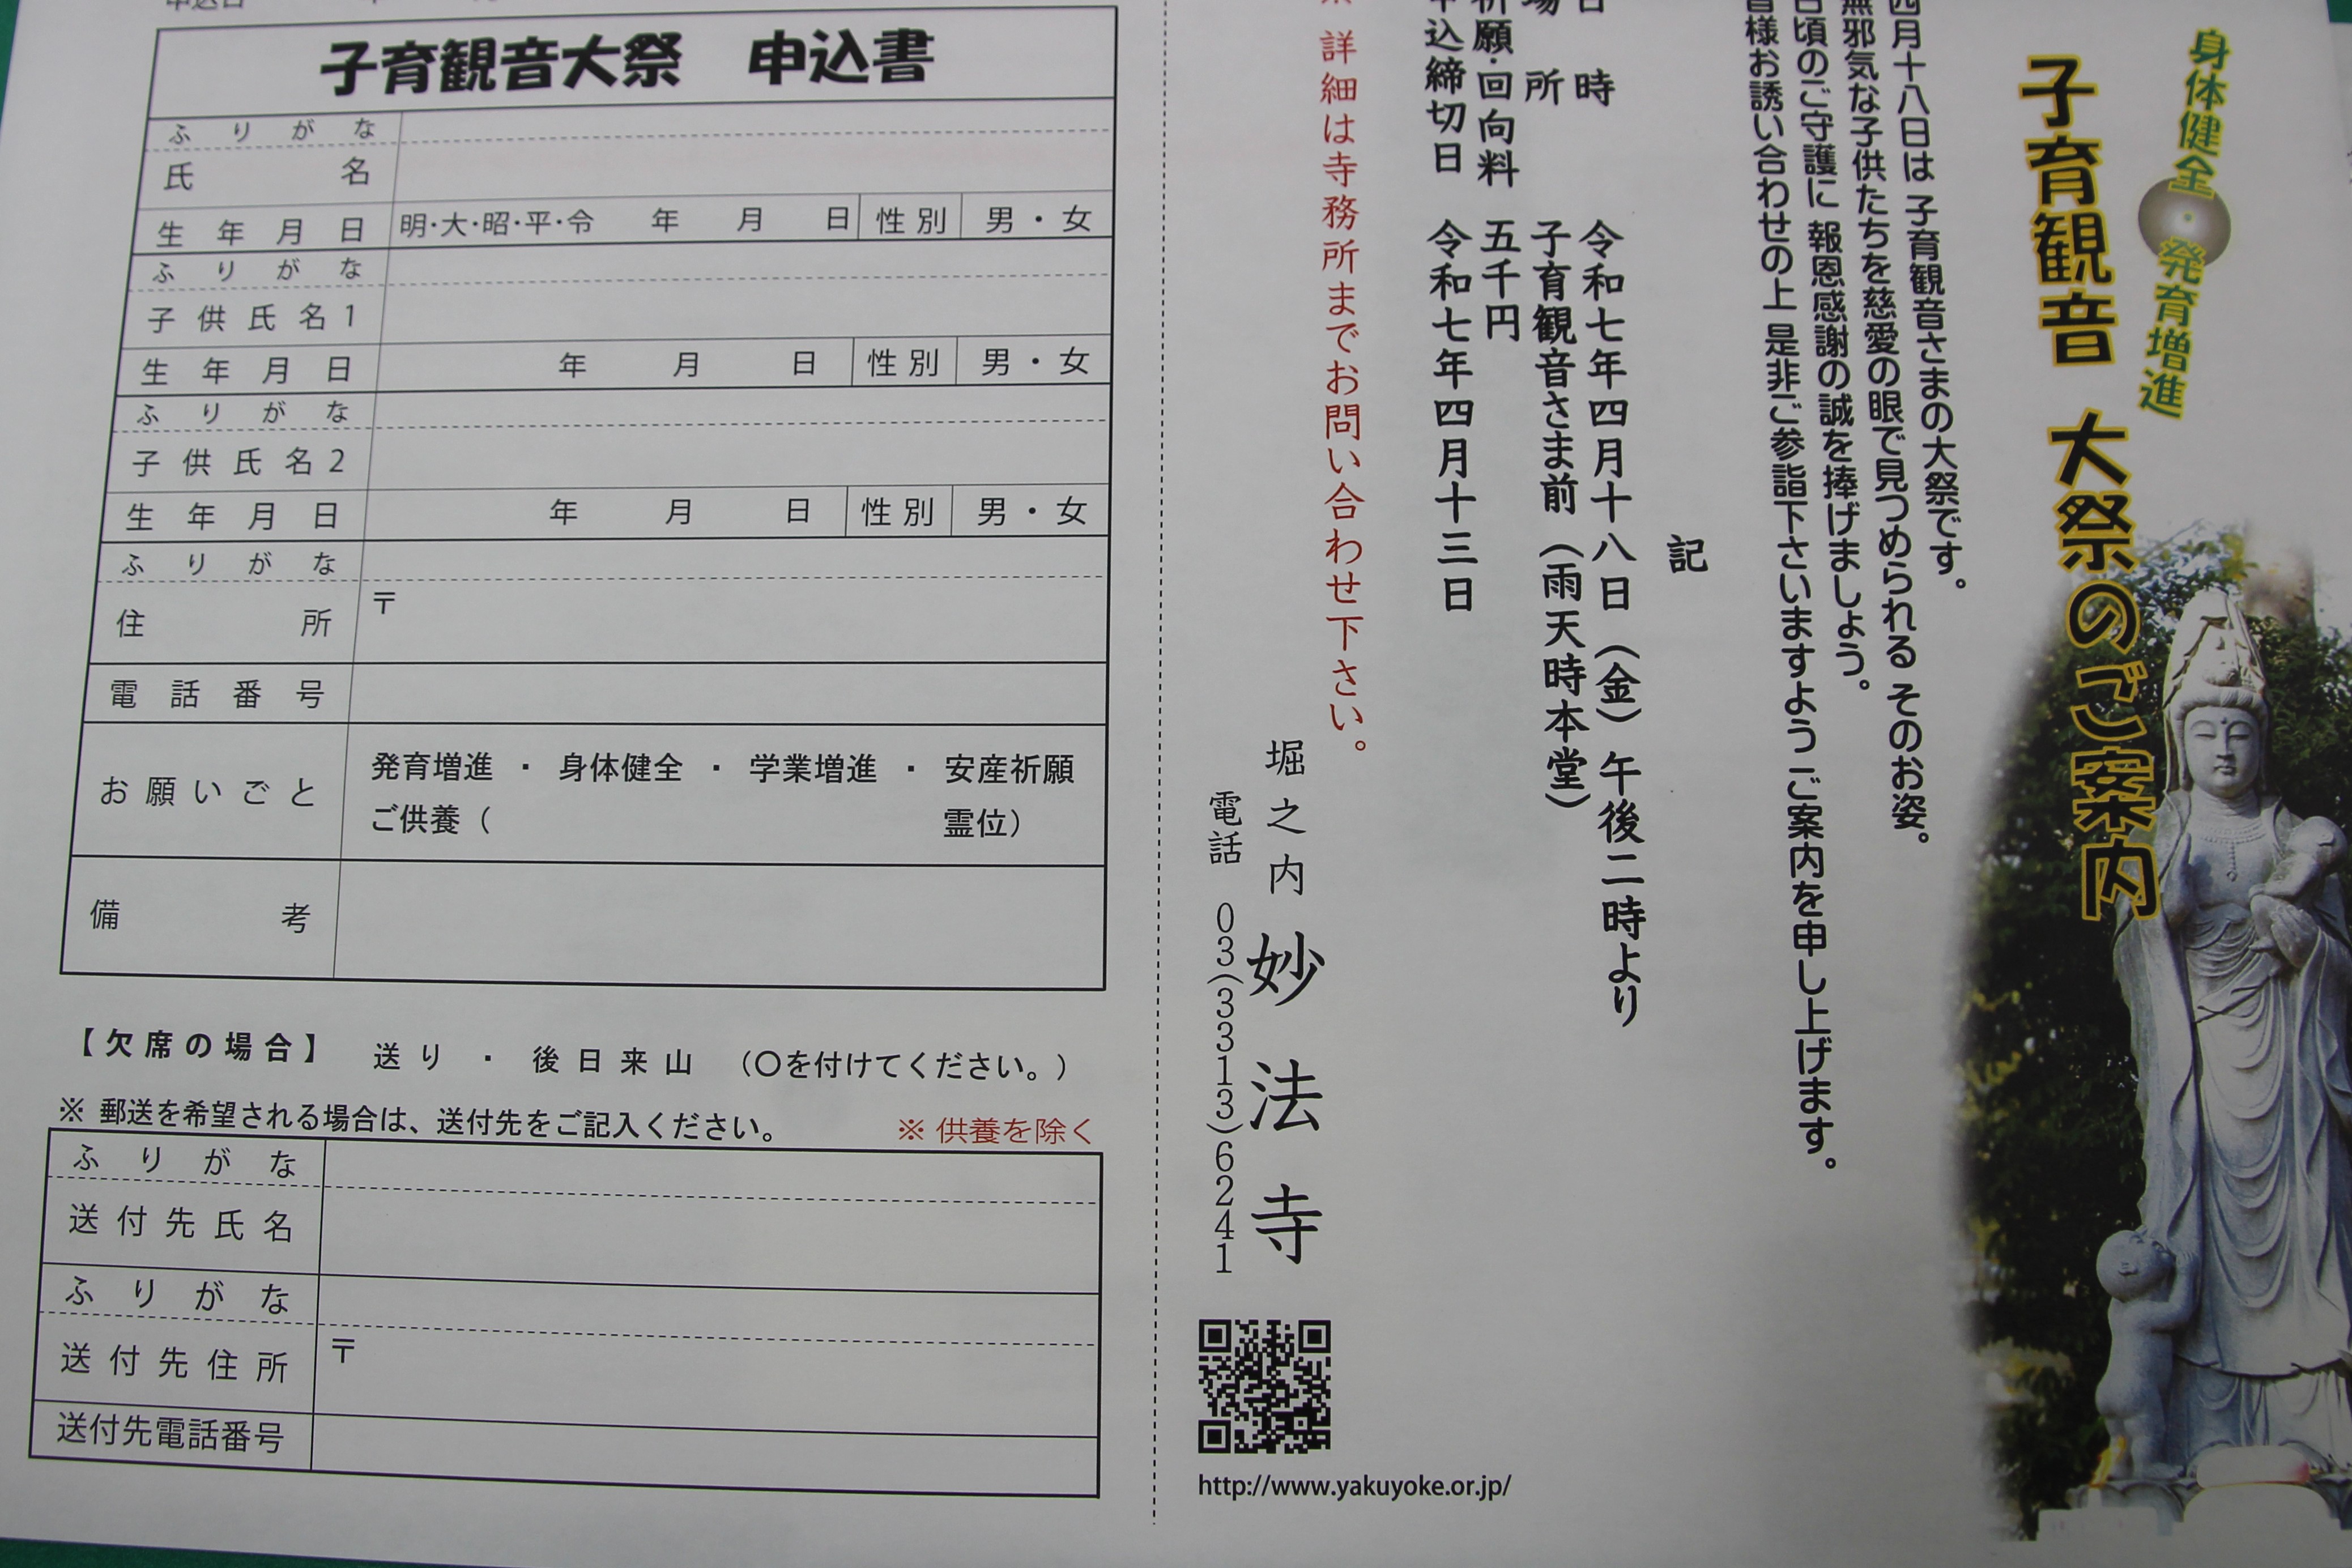 身体健全・発育増進
子育観音 大祭のご案内
四月十八日は 子育観音さまの大祭です。
無邪気な子供たちを慈愛の眼で見つめられる そのお姿。
日頃のご守護に 報恩感謝の誠を捧げましょう。
皆様お誘い合わせの上 是非ご参詣下さいますよう ご案内を申し上げます。
記
日時 令和七年四月十八日（金）午後二時より
場所 子育観音さま前（雨天時本堂）
祈願・回向料 五千円
申込締切日 令和七年四月十三日
※ 詳細は寺務所までお問い合わせ下さい。
堀之内 妙法寺
電話 03(3313)6241
http://www.yakuyoke.or.jp/
申込日
子育観音大祭 申込書
ふりがな
氏名
生年月日 明・大・昭・平・令 年 月 日 性別 男・女
ふりがな
子供氏名1
生年月日 年 月 日 性別 男・女
ふりがな
子供氏名2
生年月日 年 月 日 性別 男・女
ふりがな
住所 〒
電話番号
お願いごと 発育増進 ・ 身体健全 ・ 学業増進 ・ 安産祈願
ご供養（ 霊位）
備考
【欠席の場合】 送り ・ 後日来山 （〇を付けてください。）
※ 郵送を希望される場合は、送付先をご記入ください。 ※ 供養を除く
ふりがな
送付先氏名
ふりがな
送付先住所 〒
送付先電話番号